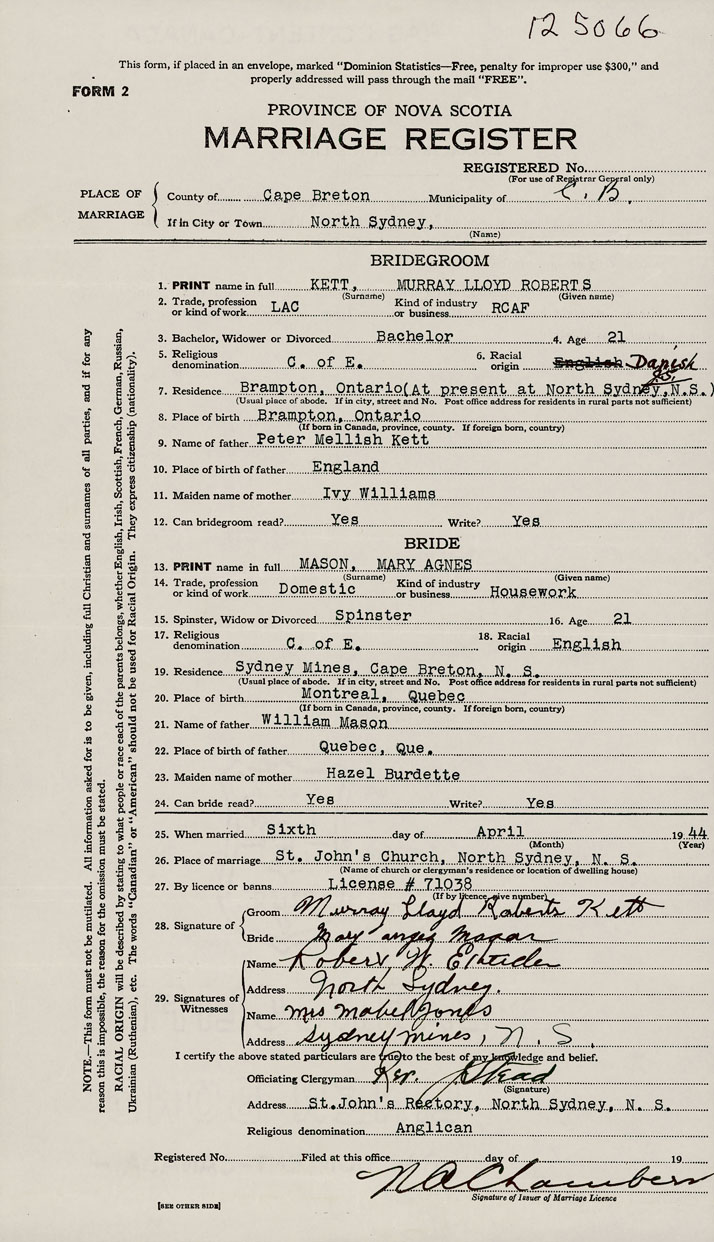 125066
This form, if placed in an envelope, marked "Dominion Statistics—Free, penalty for improper use $300," and
properly addressed will pass through the mail "FREE".
FORM 2
PROVINCE OF NOVA SCOTIA
MARRIAGE REGISTER
REGISTERED No.
(For use of Registrar General only)
PLACE OF MARRIAGE
County of Cape Breton Municipality of C. B.
If in City or Town North Sydney,
(Name)
BRIDEGROOM
1. PRINT name in full KETT, MURRAY LLOYD ROBERTS
(Surname) (Given name)
2. Trade, profession or kind of work LAC Kind of industry or business RCAF
3. Bachelor, Widower or Divorced Bachelor 4. Age 21
5. Religious denomination C. of E. 6. Racial origin English Danish
7. Residence Brampton, Ontario(At present at North Sydney,N.S.)
(Usual place of abode. If in city, street and No. Post office address for residents in rural parts not sufficient)
8. Place of birth Brampton, Ontario
(If born in Canada, province, county. If foreign born, country)
9. Name of father Peter Mellish Kett
10. Place of birth of father England
11. Maiden name of mother Ivy Williams
12. Can bridegroom read? Yes Write? Yes
BRIDE
13. PRINT name in full MASON, MARY AGNES
(Surname) (Given name)
14. Trade, profession or kind of work Domestic Kind of industry or business Housework
15. Spinster, Widow or Divorced Spinster 16. Age 21
17. Religious denomination C. of E. 18. Racial origin English
19. Residence Sydney Mines, Cape Breton, N. S.
(Usual place of abode. If in city, street and No. Post office address for residents in rural parts not sufficient)
20. Place of birth Montreal, Quebec
(If born in Canada, province, county. If foreign born, country)
21. Name of father William Mason
22. Place of birth of father Quebec, Que.
23. Maiden name of mother Hazel Burdette
24. Can bride read? Yes Write? Yes
25. When married Sixth day of April 1944
(Month) (Year)
26. Place of marriage St. John's Church, North Sydney, N. S.
(Name of church or clergyman's residence or location of dwelling house)
27. By licence or banns License # 71038
(If by licence, give number)
28. Signature of
Groom Murray Lloyd Roberts Kett
Bride Mary Agnes Mason
29. Signatures of Witnesses
Name Robert W.
Address North Sydney.
Name Mrs Mabel Jones
Address Sydney Mines, N. S.
I certify the above stated particulars are true to the best of my knowledge and belief.
Officiating Clergyman Rev. Stead
(Signature)
Address St.John's Rectory, North Sydney, N. S.
Religious denomination Anglican
Registered No. Filed at this office day of 19
N A Chambers
Signature of Issuer of Marriage Licence
[SEE OTHER SIDE]
NOTE.—This form must not be mutilated. All information asked for is to be given, including full Christian and surnames of all parties, and if for any
reason this is impossible, the reason for the omission must be stated.
RACIAL ORIGIN will be described by stating to what people or race each of the parents belongs, whether English, Irish, Scottish, French, German, Russian,
Ukrainian (Ruthenian), etc. The words "Canadian" or "American" should not be used for Racial Origin. They express citizenship (nationality).